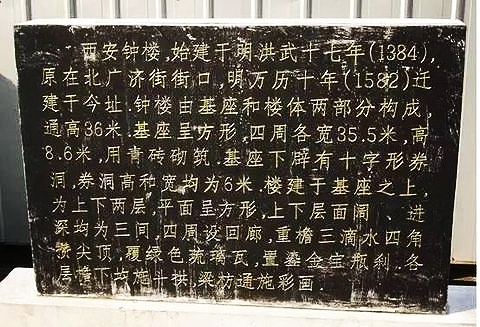 西安钟楼,始建于明洪武十七年(1384),
原在北广济街街口,明万历十年(1582)迁
建于今址.钟楼由基座和楼体两部分构成,
通高36米.基座呈方形,四周各宽35.5米,高
8.6米,用青砖砌筑.基座下辟有十字形券
洞,券洞高和宽均为6米.楼建于基座之上,
为上下两层,平面呈方形,上下层面阔、进
深均为三间.四周设回廊,重檐三滴水四角
攒尖顶,覆绿色琉璃瓦,置鎏金宝瓶刹.各
层檐下均施斗拱.梁枋通施彩画.